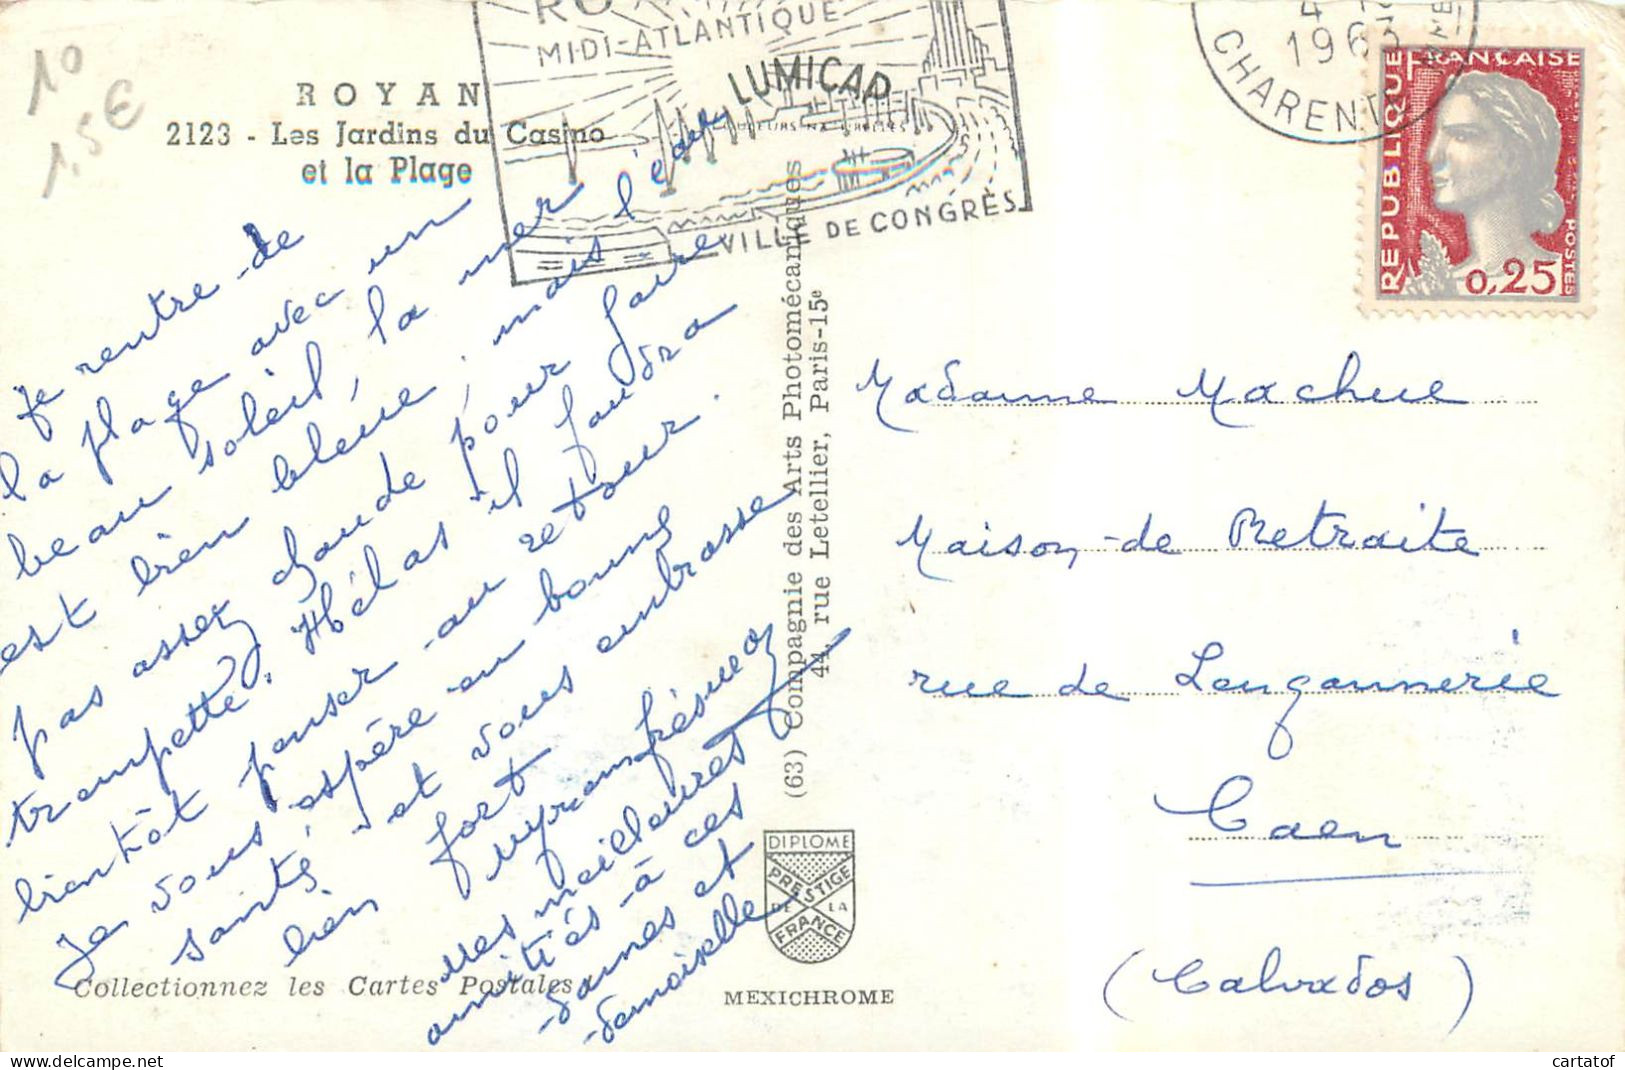 10
1.5€
ROYAN
2123 - Les Jardins du Casino
et la Plage
RO
MIDI-ATLANTIQUE
LUMICAP
VILLE DE CONGRÈS
4
196
CHARENTE
RÉPUBLIQUE FRANÇAISE
POSTES
0,25
je rentre de
la plage avec un
beau soleil, la mer
est bien bleue, mais l'eau
pas assez chaude pour faire
trempette. Hélas il faudra
bientôt penser au retour.
Je vous espère en bonne
santé et vous embrasse
bien fort
mes meilleures
amitiés à ces
dames et
demoiselle
(63) Compagnie des Arts Photomécaniques
44, rue Letellier, Paris-15e
Madame Machue
Maison de Retraite
rue de Lengannerie
Caen
(Calvados)
DIPLOME
PRESTIGE
DE LA
FRANCE
Collectionnez les Cartes Postales
MEXICHROME
delcampe.net
cartatof